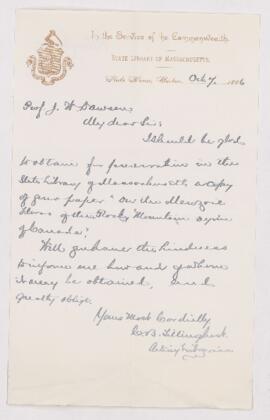 In the Service of the Commonwealth.
STATE LIBRARY OF MASSACHUSETTS,
State House, Boston, Oct 7, 1886
Prof J. W Dawson
My dear Sir:
I should be glad
to obtain for preservation in the
State Library of Massachusetts a copy
of your paper "On the Mesozoic
Floras of the Rocky Mountain Region
of Canada".
Will you have the kindness
to inform me how and of whom
it may be obtained, and
greatly oblige.
Yours Most Cordially
C. B. Tillinghast
Acting Librarian